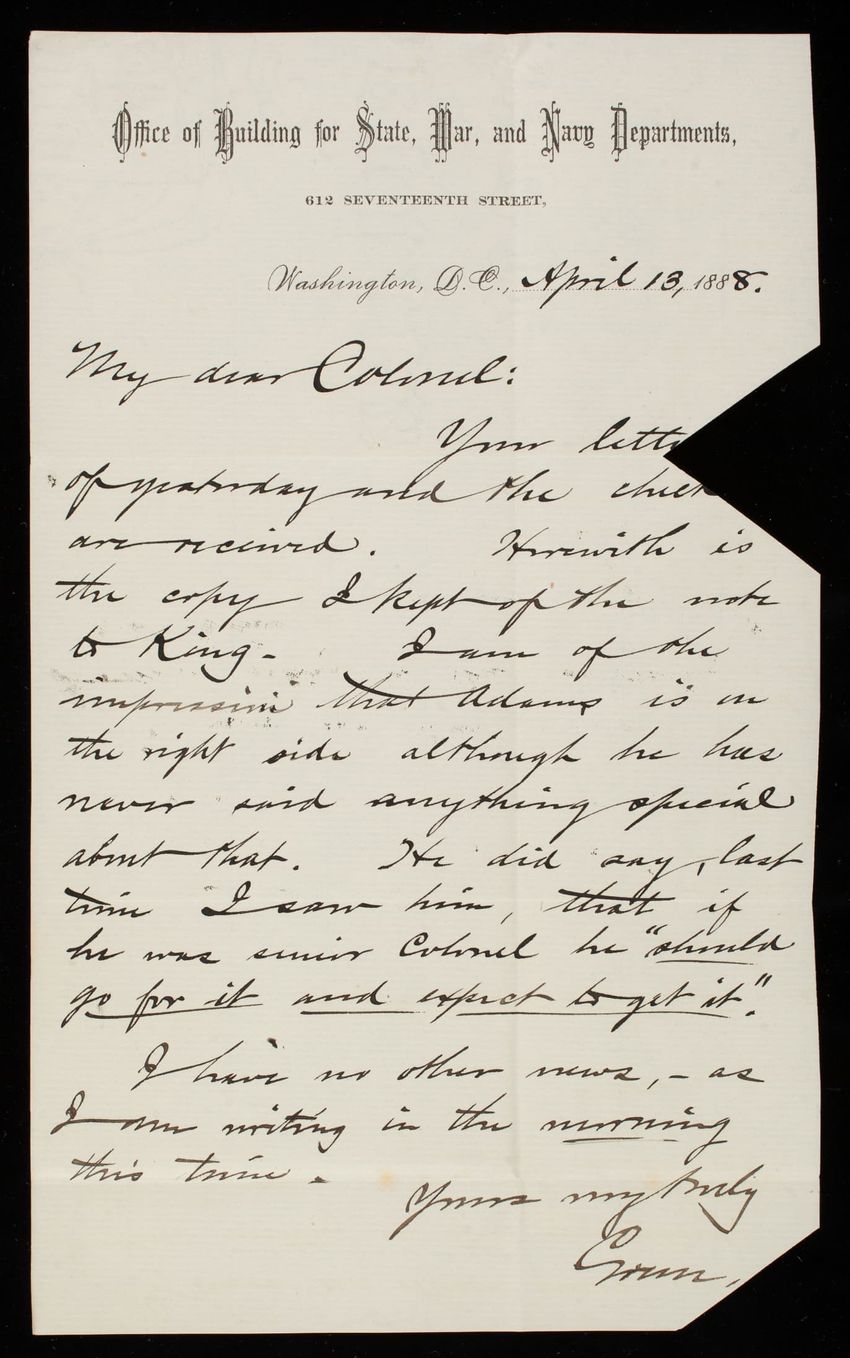 Office of Building for State, War, and Navy Departments,
612 SEVENTEENTH STREET,
Washington, D.C., April 13, 1888.
My dear Colonel:
Your lette
of yesterday and the check
are received. Herewith is
the copy I kept of the note
to King. I am of the
impression that Adams is on
the right side although he has
never said anything special
about that. He did say, last
time I saw him, that if
he was senior Colonel he "should
go for it and expect to get it".
I have no other news, - as
I am writing in the morning
this time.
Yours very truly